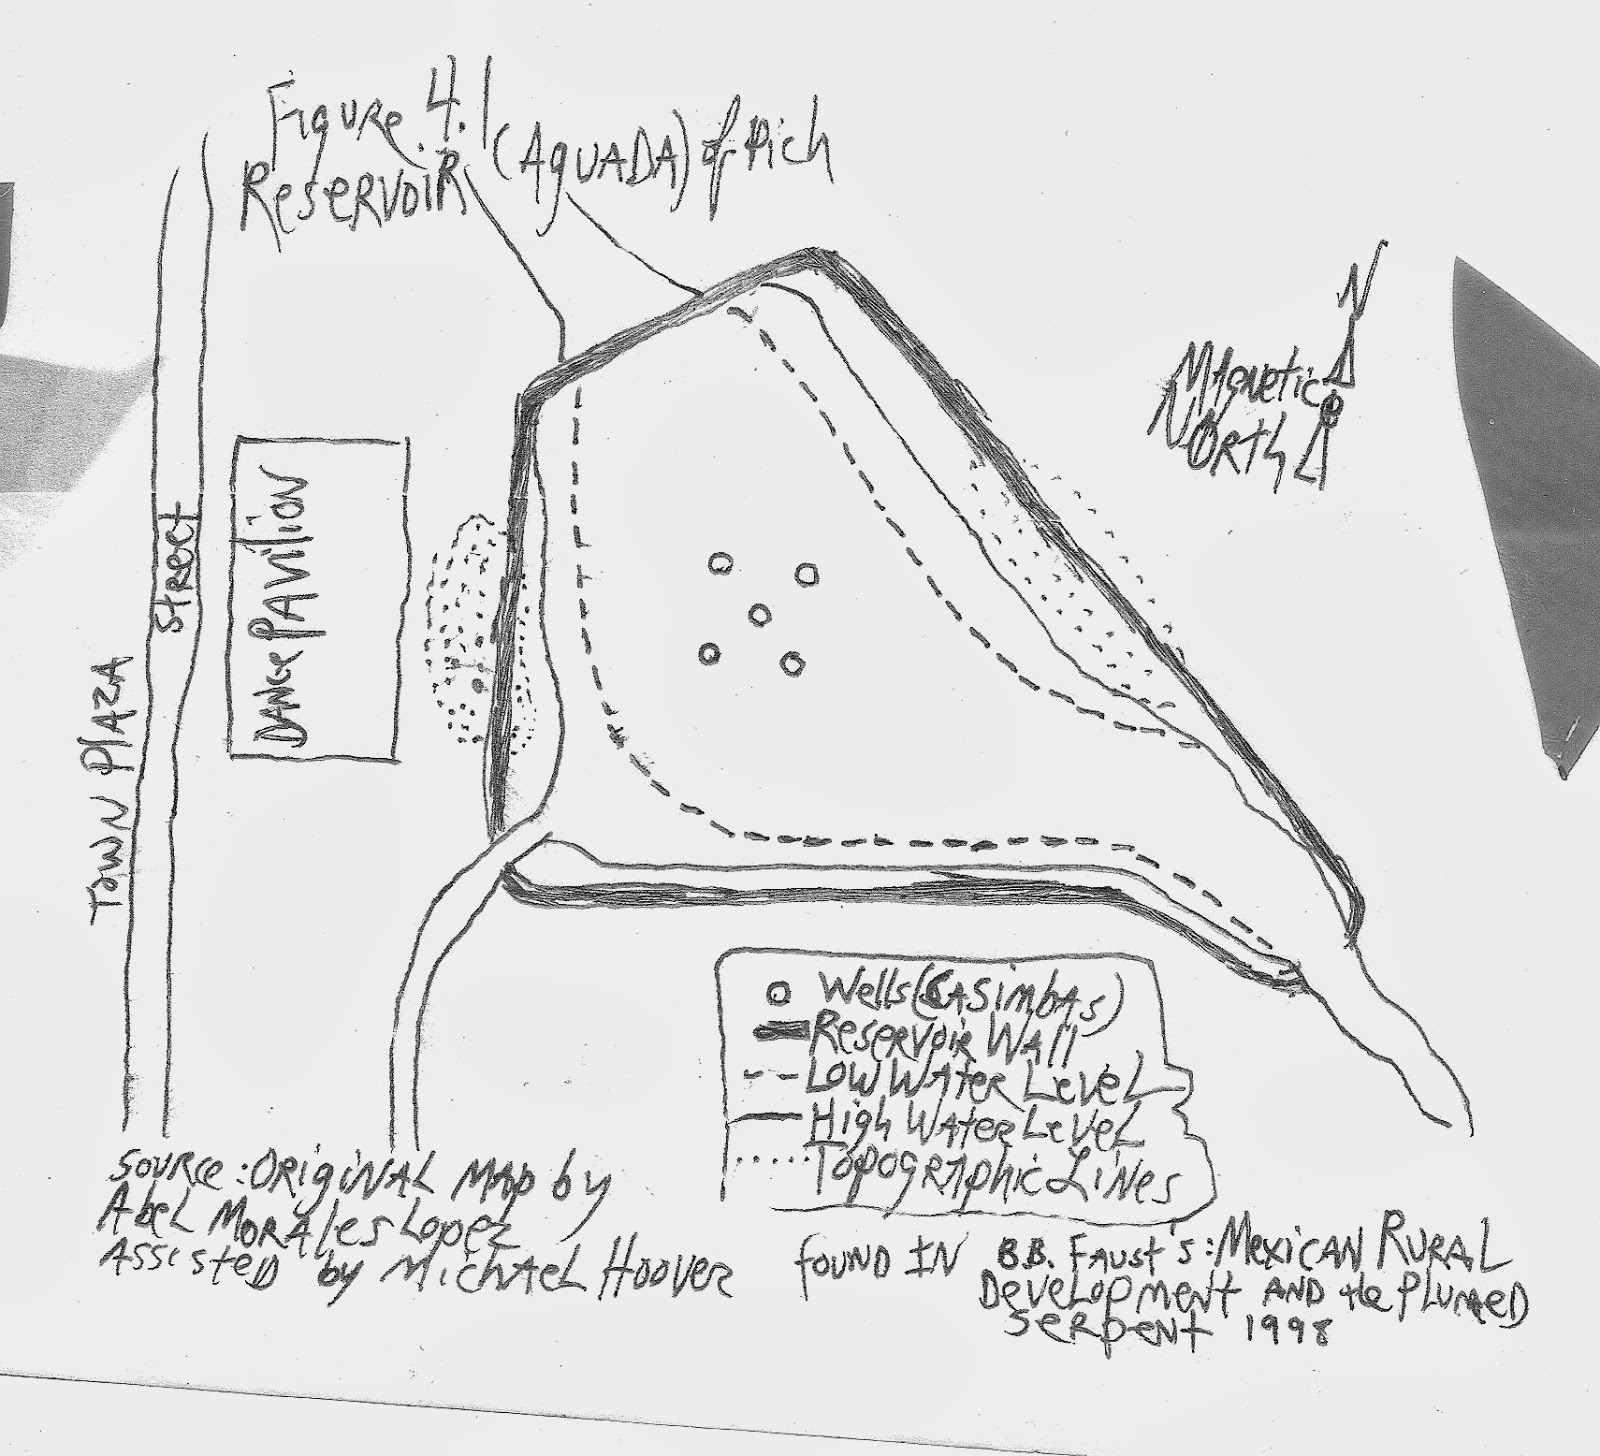 Figure 4.1
Reservoir (Aguada) of Pich
N
Magnetic
North
Street
Dance Pavilion
Town Plaza
Wells (Casimbas)
Reservoir Wall
Low Water Level
High Water Level
Topographic Lines
Source: Original Map by
Abel Morales Lopez
Assisted by Michael Hoover
found in B.B. Faust's: Mexican Rural
Development and the Plumed
Serpent 1998